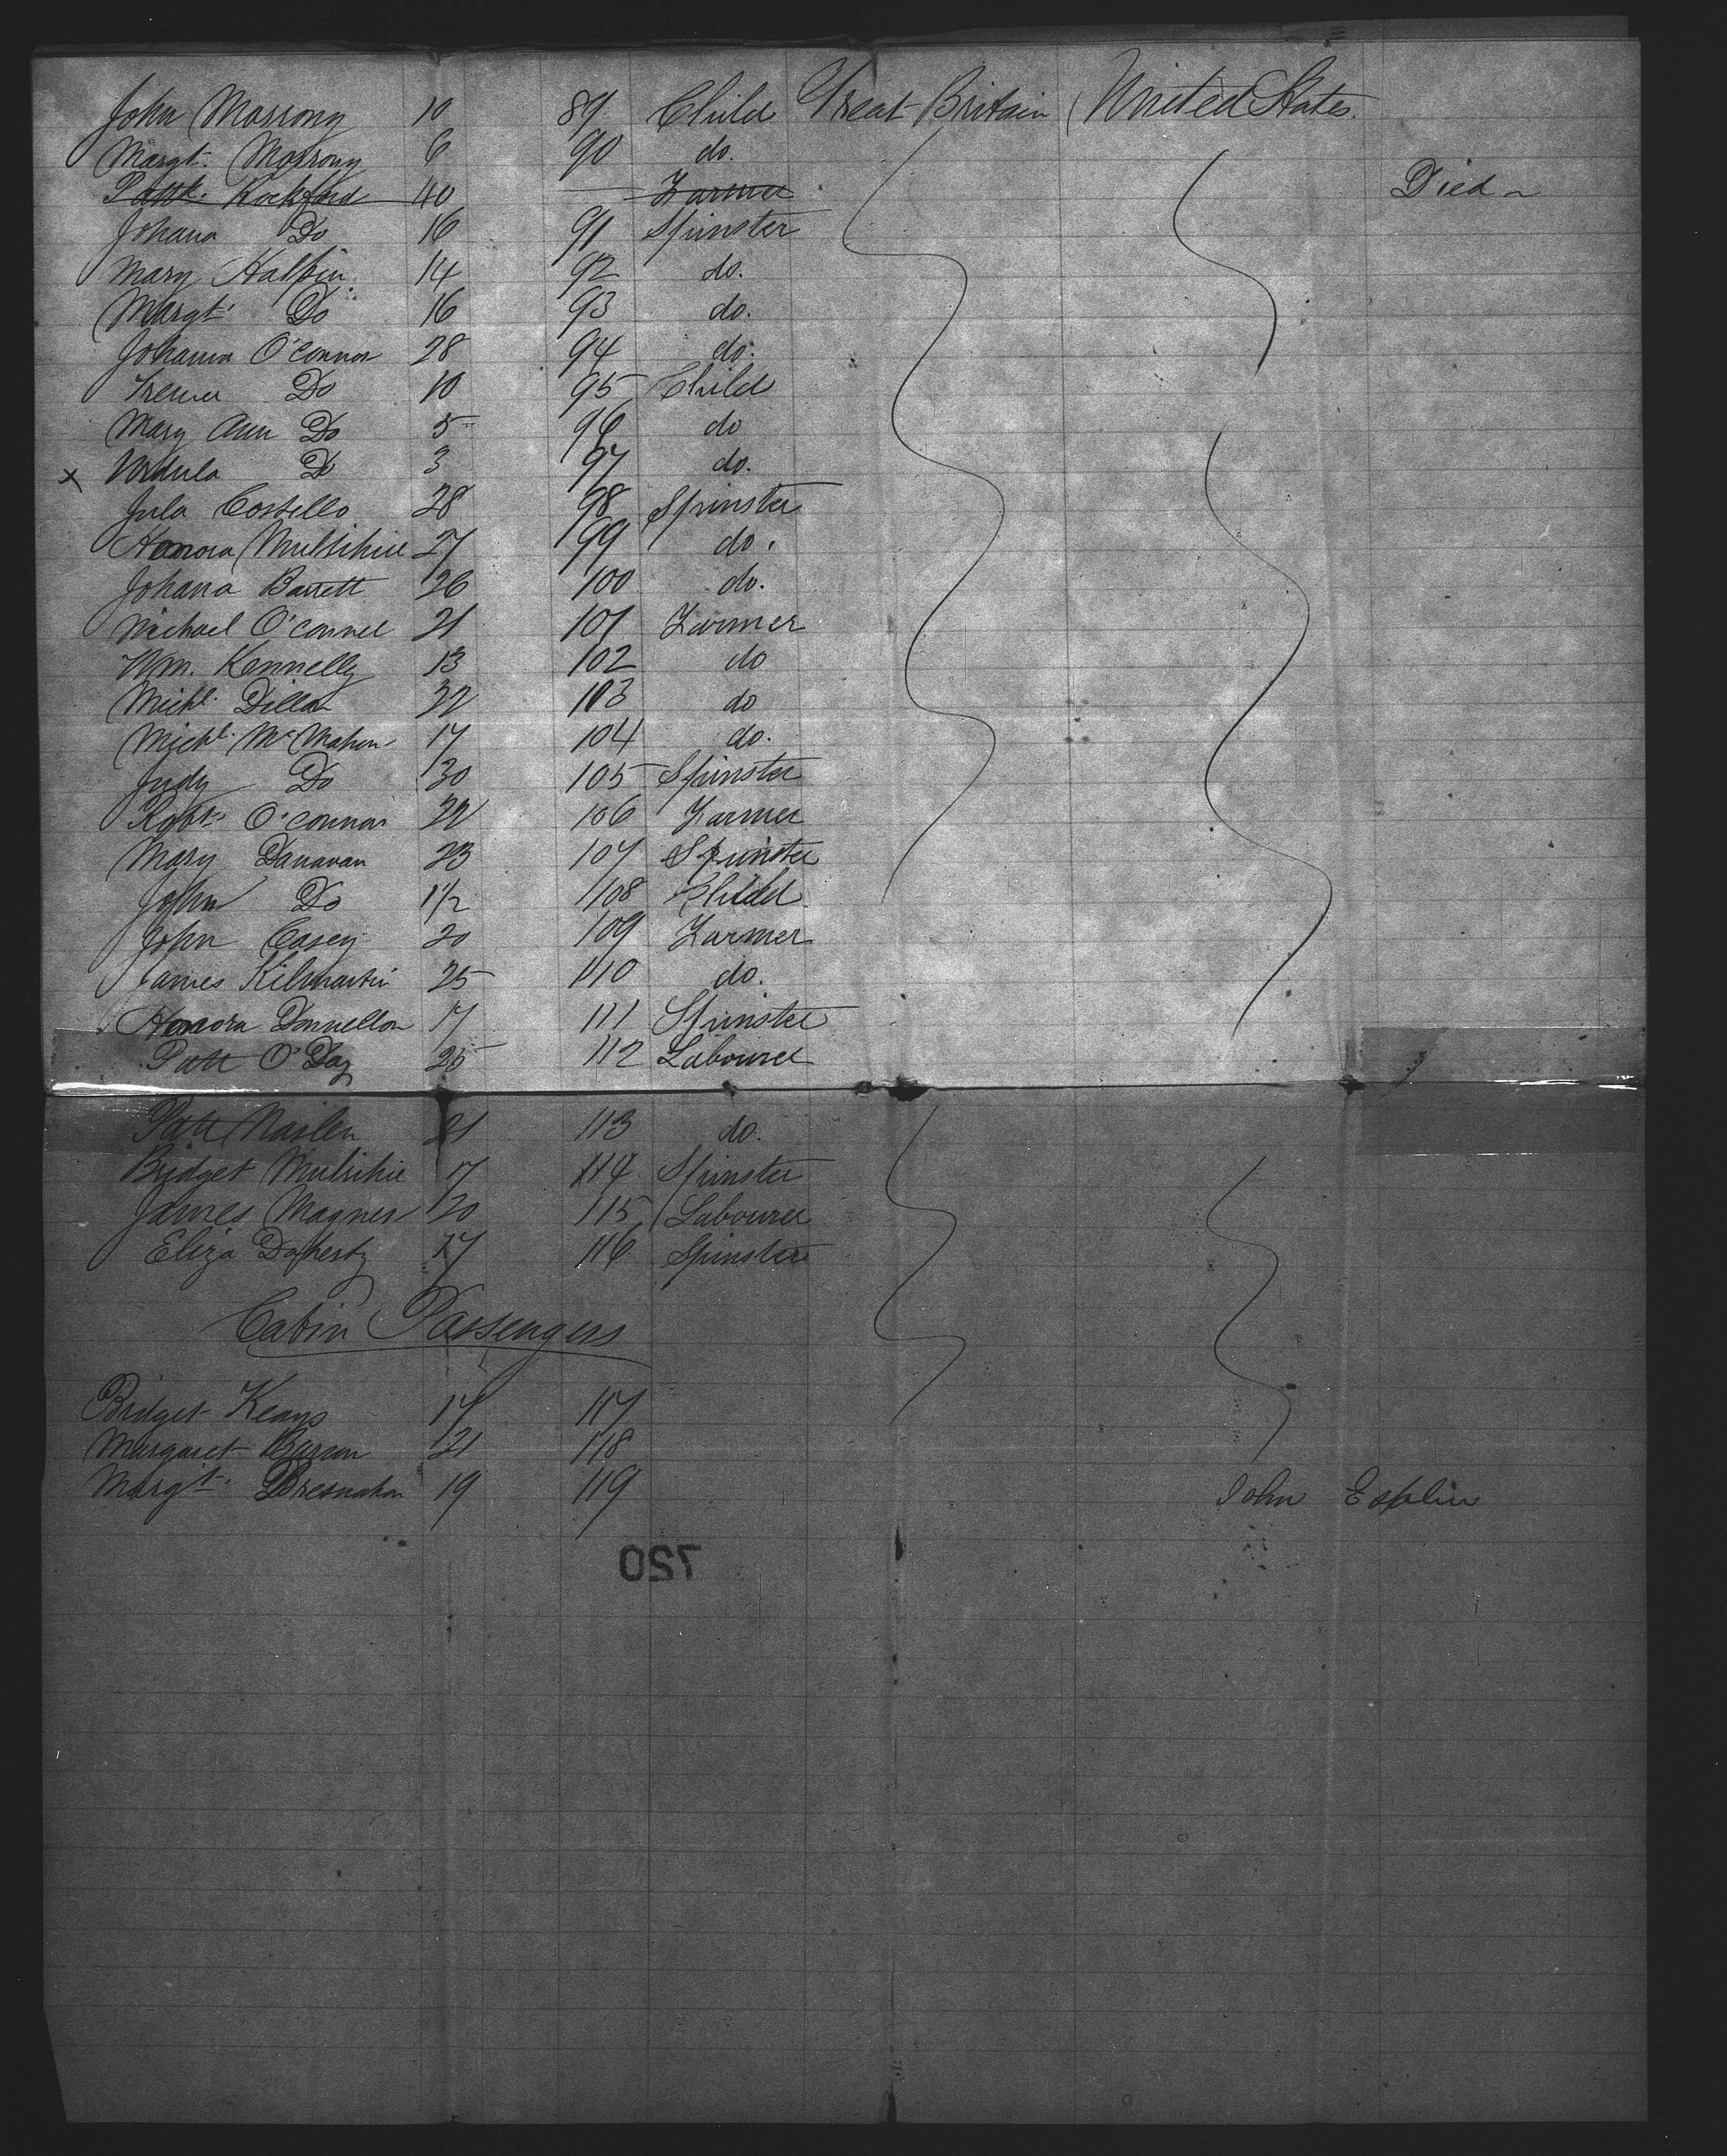 John Morrony 10 89 Child Great Britain United States.
Margt. Morrony 6 90 do.
Pattk. Rockford 40 Farmer Died
Johana Do 16 91 Spinster
Mary Halpin 14 92 do.
Margt. Do 16 93 do.
Johanna O'Connor 28 94 do.
Do 10 95 Child
Mary Ann Do 5 96 do
x Ursula Do 3 97 do.
Jula Costello 28 98 Spinster
Honora Mulvihill 27 99 do.
Johana Barrett 26 100 do.
Michael O'Connel 21 101 Farmer
Wm. Kennelly 13 102 do
Michl. Dillon 22 103 do
Michl. McMahon 17 104 do.
Judy Do 30 105 Spinster
Robt. O'Connor 22 106 Farmer
Mary Danavan 23 107 Spinster
John Do 1/2 108 Child
John Casey 20 109 Farmer
James Kilmartin 25 110 do.
Honora Donnellon 17 111 Spinster
Patt O'Day 25 112 Labourer
Patt 21 113 do.
Bridget Mulvihil 17 114 Spinster
James Magner 20 115 Labourer
Eliza Doherty 17 116 Spinster
Cabin Passengers
Bridget Keays 17 117
Margaret 21 118
Margt. Bresnahan 19 119
John Esplin
120